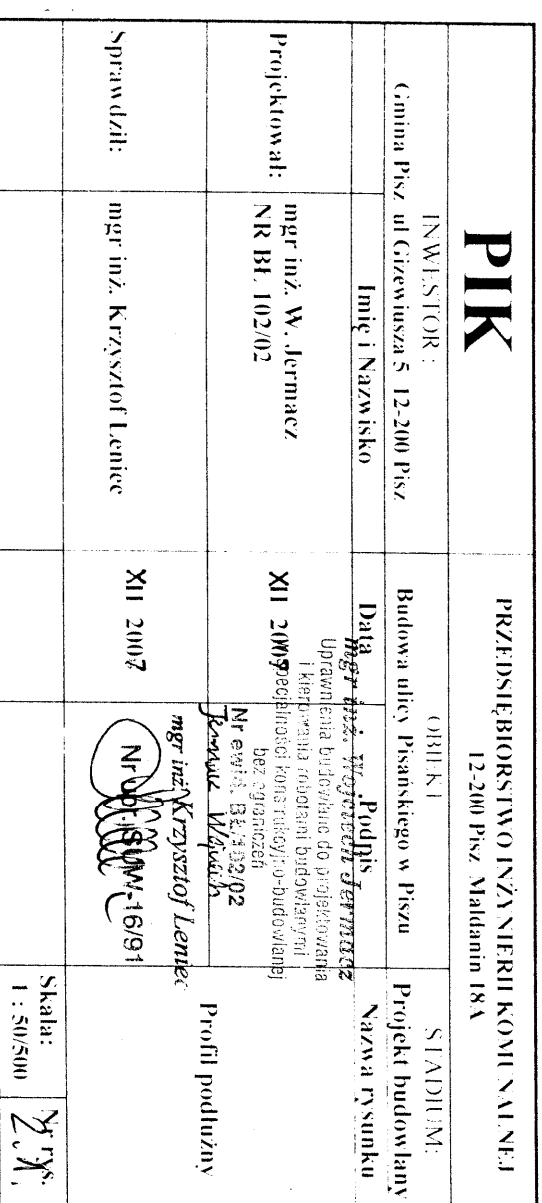 PIK
PRZEDSIĘBIORSTWO INŻYNIERII KOMUNALNEJ
12-200 Pisz Maldanin 18A
INWESTOR :
OBIEKT
STADIUM:
Gmina Pisz ul Gizewiusza 5 12-200 Pisz
Budowa ulicy Pisańskiego w Piszu
Projekt budowlany
Imię i Nazwisko
Data
Podpis
Nazwa rysunku
Projektował:
mgr inż. W. Jermacz
NR BŁ 102/02
XII 2007
mgr inż. Wojciech Jermacz
Uprawnienia budowlane do projektowania
i kierowania robotami budowlanymi
w specjalności konstrukcyjno-budowlanej
bez ograniczeń
Nr ewid. BŁ 102/02
Profil podłużny
Sprawdził:
mgr inż. Krzysztof Leniec
XII 2007
mgr inż. Krzysztof Leniec
Nr upr. SUW-16/91
Skala:
1 : 50/500
Nr rys.